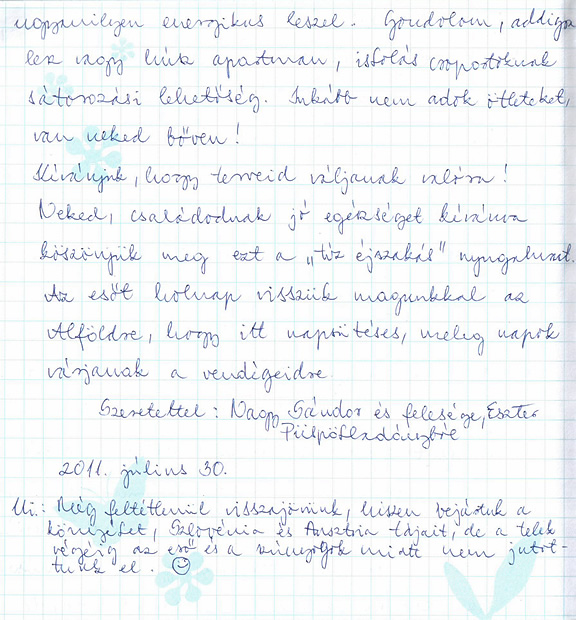 ugyanilyen energikus leszel. Gondolom, addigra
lesz vagy húsz apartman, iskolás csoportoknak
sátorozási lehetőség. Inkább nem adok ötleteket,
van neked bőven!
Kívánjuk, hogy terveid váljanak valóra!
Neked, családodnak jó egészséget kívánva
köszönjük meg ezt a „tíz éjszakás" nyugalmat.
Az esőt holnap visszük magunkkal az
Alföldre, hogy itt napsütéses, meleg napok
várjanak a vendégeidre
Szeretettel: Nagy Sándor és felesége, Eszter
Püspökladányból
2011. július 30.
Ui.: Még feltétlenül visszajövünk, hiszen bejártuk a
környéket, Szlovénia és Ausztria tájait, de a telek
végéig az eső és a szúnyogok miatt nem jutot-
tunk el. ☺